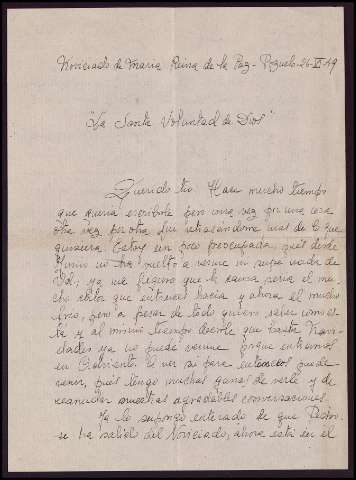 Noviciado de Maria Reina de la Paz - Pozuelo 26-XI-49
"La Santa Voluntad de Dios"
Querido tio: Hace mucho tiempo
que queria escribirle pero una vez por una cosa
otra vez por otra fui retrasandome mas de lo que
quisiera. Estoy un poco preocupada, pues desde
Junio no ha vuelto a verme ni supe nada de
Vd; ya me figuro que la causa seria el mu-
cho calor que entonces hacia y ahora el mucho
frio, pero a pesar de todo quiero saber como es-
tá y al mismo tiempo decirle que hasta Navi-
dades ya no puede verme porque entramos
en Adviento. A ver si para entonces puede
venir, pues tengo muchas ganas de verle y de
reanudar nuestras agradables conversaciones.
Ya le supongo enterado de que Pedro
se ha salido del Noviciado, ahora está en el